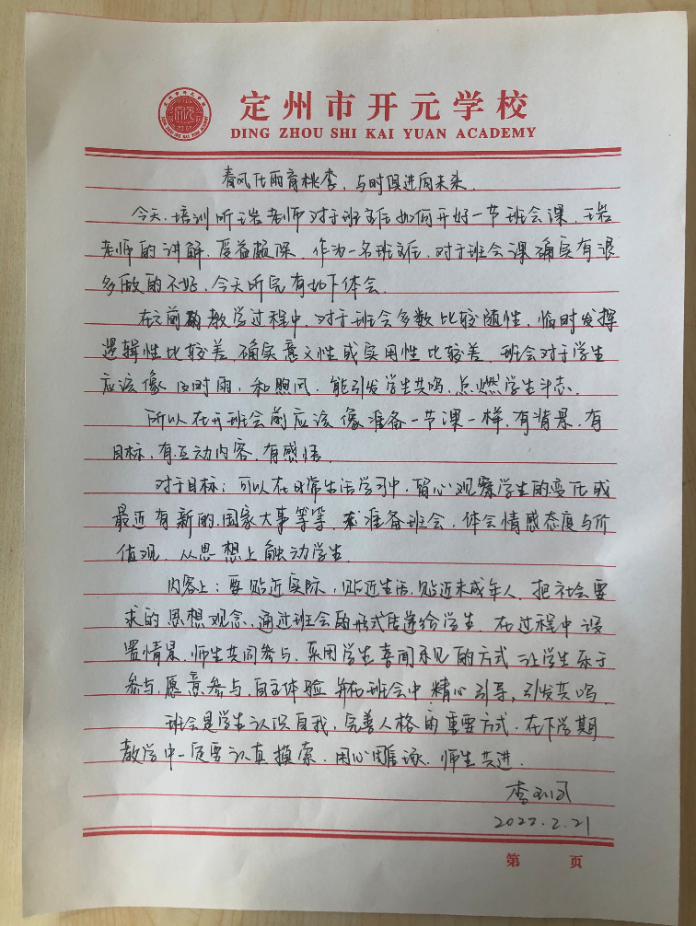 定州市开元学校
DING ZHOU SHI KAI YUAN ACADEMY
春风化雨育桃李，与时俱进向未来．
今天，培训听王岩老师对于班主任如何开好一节班会课，王岩
老师的讲解，受益颇深．作为一名班主任，对于班会课确实有很
多做的不好，今天听完有如下体会．
在之前的教学过程中，对于班会多数比较随性，临时发挥
逻辑性比较差，确实意义性或实用性比较差．班会对于学生
应该像及时雨，和煦风，能引发学生共鸣，点燃学生斗志．
所以在开班会前应该像准备一节课一样，有背景，有
目标，有互动内容，有感悟．
对于目标：可以在日常生活学习中，留心观察学生的变化或
最近有新的，国家大事等等，来准备班会，体会情感态度与价
值观，从思想上触动学生．
内容上：要贴近实际，贴近生活，贴近未成年人，把社会要
求的思想观念，通过班会的形式传递给学生．在过程中设
置情景，师生共同参与，采用学生喜闻乐见的方式，让学生乐于
参与，愿意参与，自主体验，并在班会中精心引导，引发共鸣．
班会是学生认识自我，完善人格的重要方式，在下学期
教学中一定要认真摸索，用心雕琢，师生共进．
李
2022.2.21
第 页